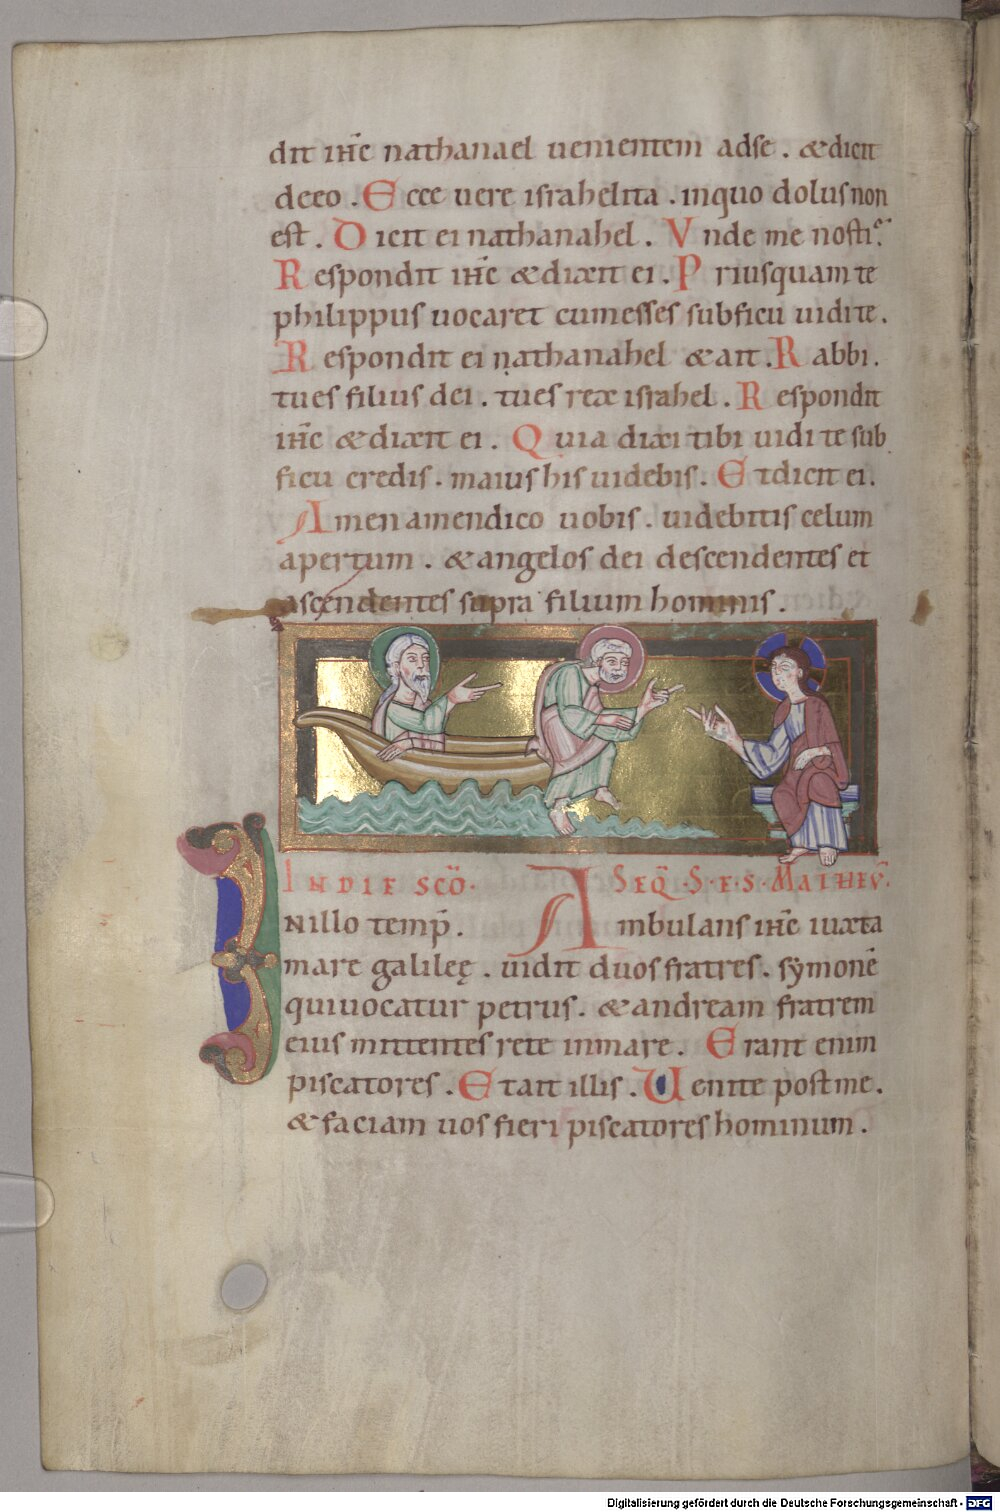 dit ihc nathanael uenientem adse. & dicit
deeo. Ecce uere israhelita. inquo dolus non
est. Dicit ei nathanahel. Vnde me nosti?
Respondit ihc & dixit ei. Priusquam te
philippus uocaret cum esses subficu uidi te.
Respondit ei nathanahel & ait. Rabbi.
tu es filius dei. tu es rex israhel. Respondit
ihc & dixit ei. Quia dixi tibi uidi te sub
ficu credis. maius his uidebis. Et dicit ei.
Amen amen dico uobis. uidebitis celum
apertum. & angelos dei descendentes et
ascendentes supra filium hominis.
IN DIE SCO. SEQ. S. E. S. MATHEV.
INillo temp̄. Ambulans ihc iuxta
mare galileę. uidit duos fratres. symonē
qui uocatur petrus. & andream fratrem
eius mittentes rete in mare. Erant enim
piscatores. Et ait illis. Uenite post me.
& faciam uos fieri piscatores hominum.
Digitalisierung gefördert durch die Deutsche Forschungsgemeinschaft - DFG